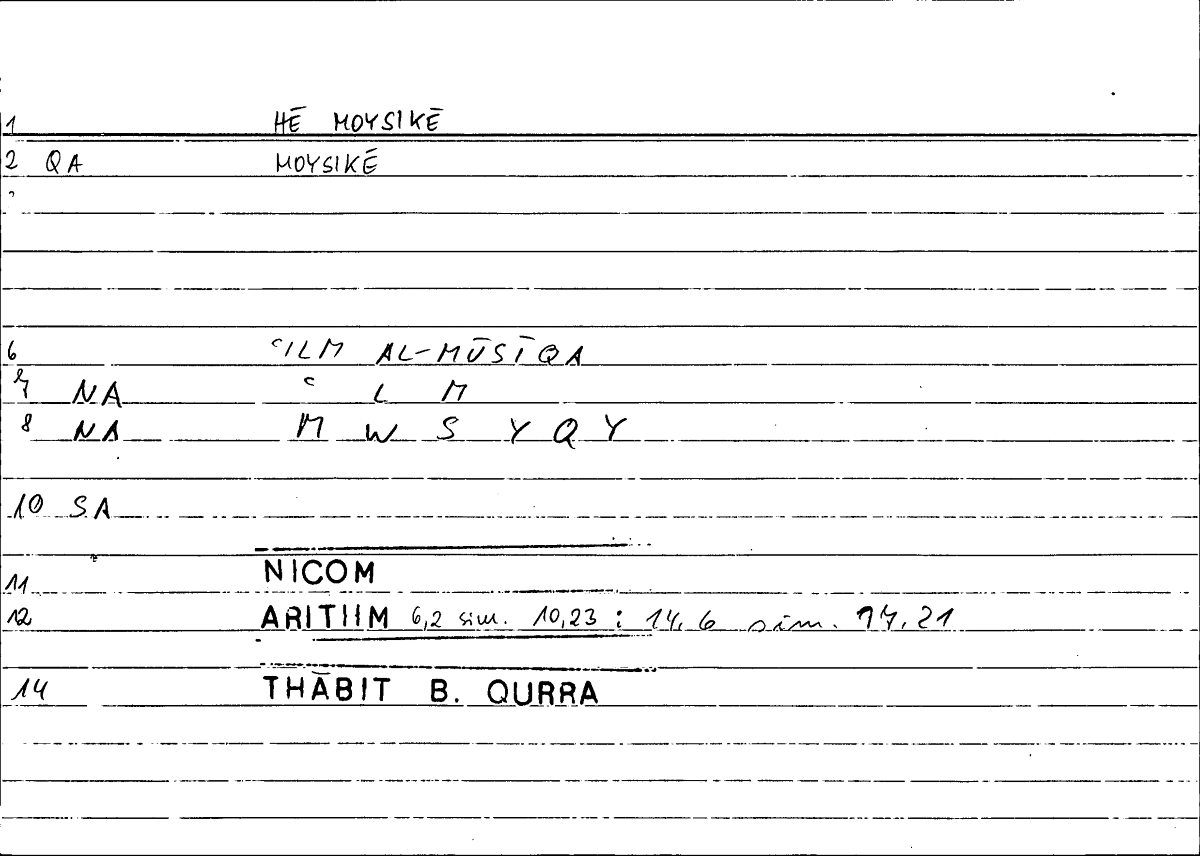 1 HĒ MOYSIKĒ
2 QA MOYSIKĒ
6 ʿILM AL-MŪSĪQA
7 NA ʿ L M
8 NA M W S Y Q Y
10 SA
11 NICOM
12 ARITHM 6,2 sim. 10,23 : 14,6 sim. 14,21
14 THĀBIT B. QURRA